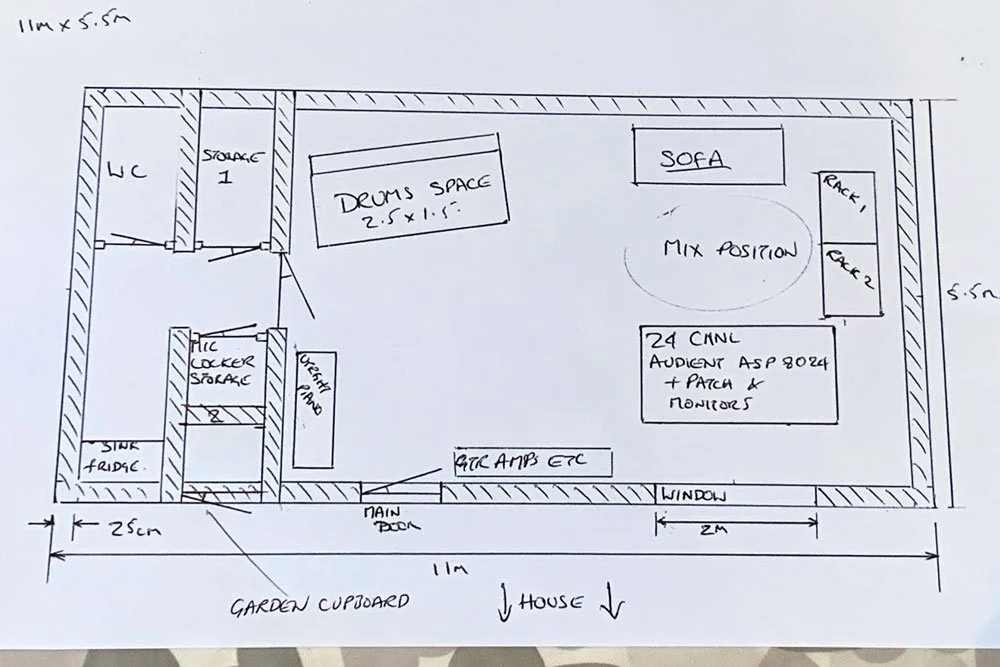 11m x 5.5m
WC
STORAGE
1
DRUMS SPACE
2.5 x 1.5
SOFA
RACK 1
MIX POSITION
RACK 2
5.5m
MIC
LOCKER
STORAGE
2
UPRIGHT
PIANO
24 CHNL
AUDIENT ASP 8024
+ PATCH &
MONITORS
SINK
FRIDGE.
GTR AMPS ETC
WINDOW
MAIN
DOOR
25cm
2M
11m
GARDEN CUPBOARD
↓ HOUSE ↓